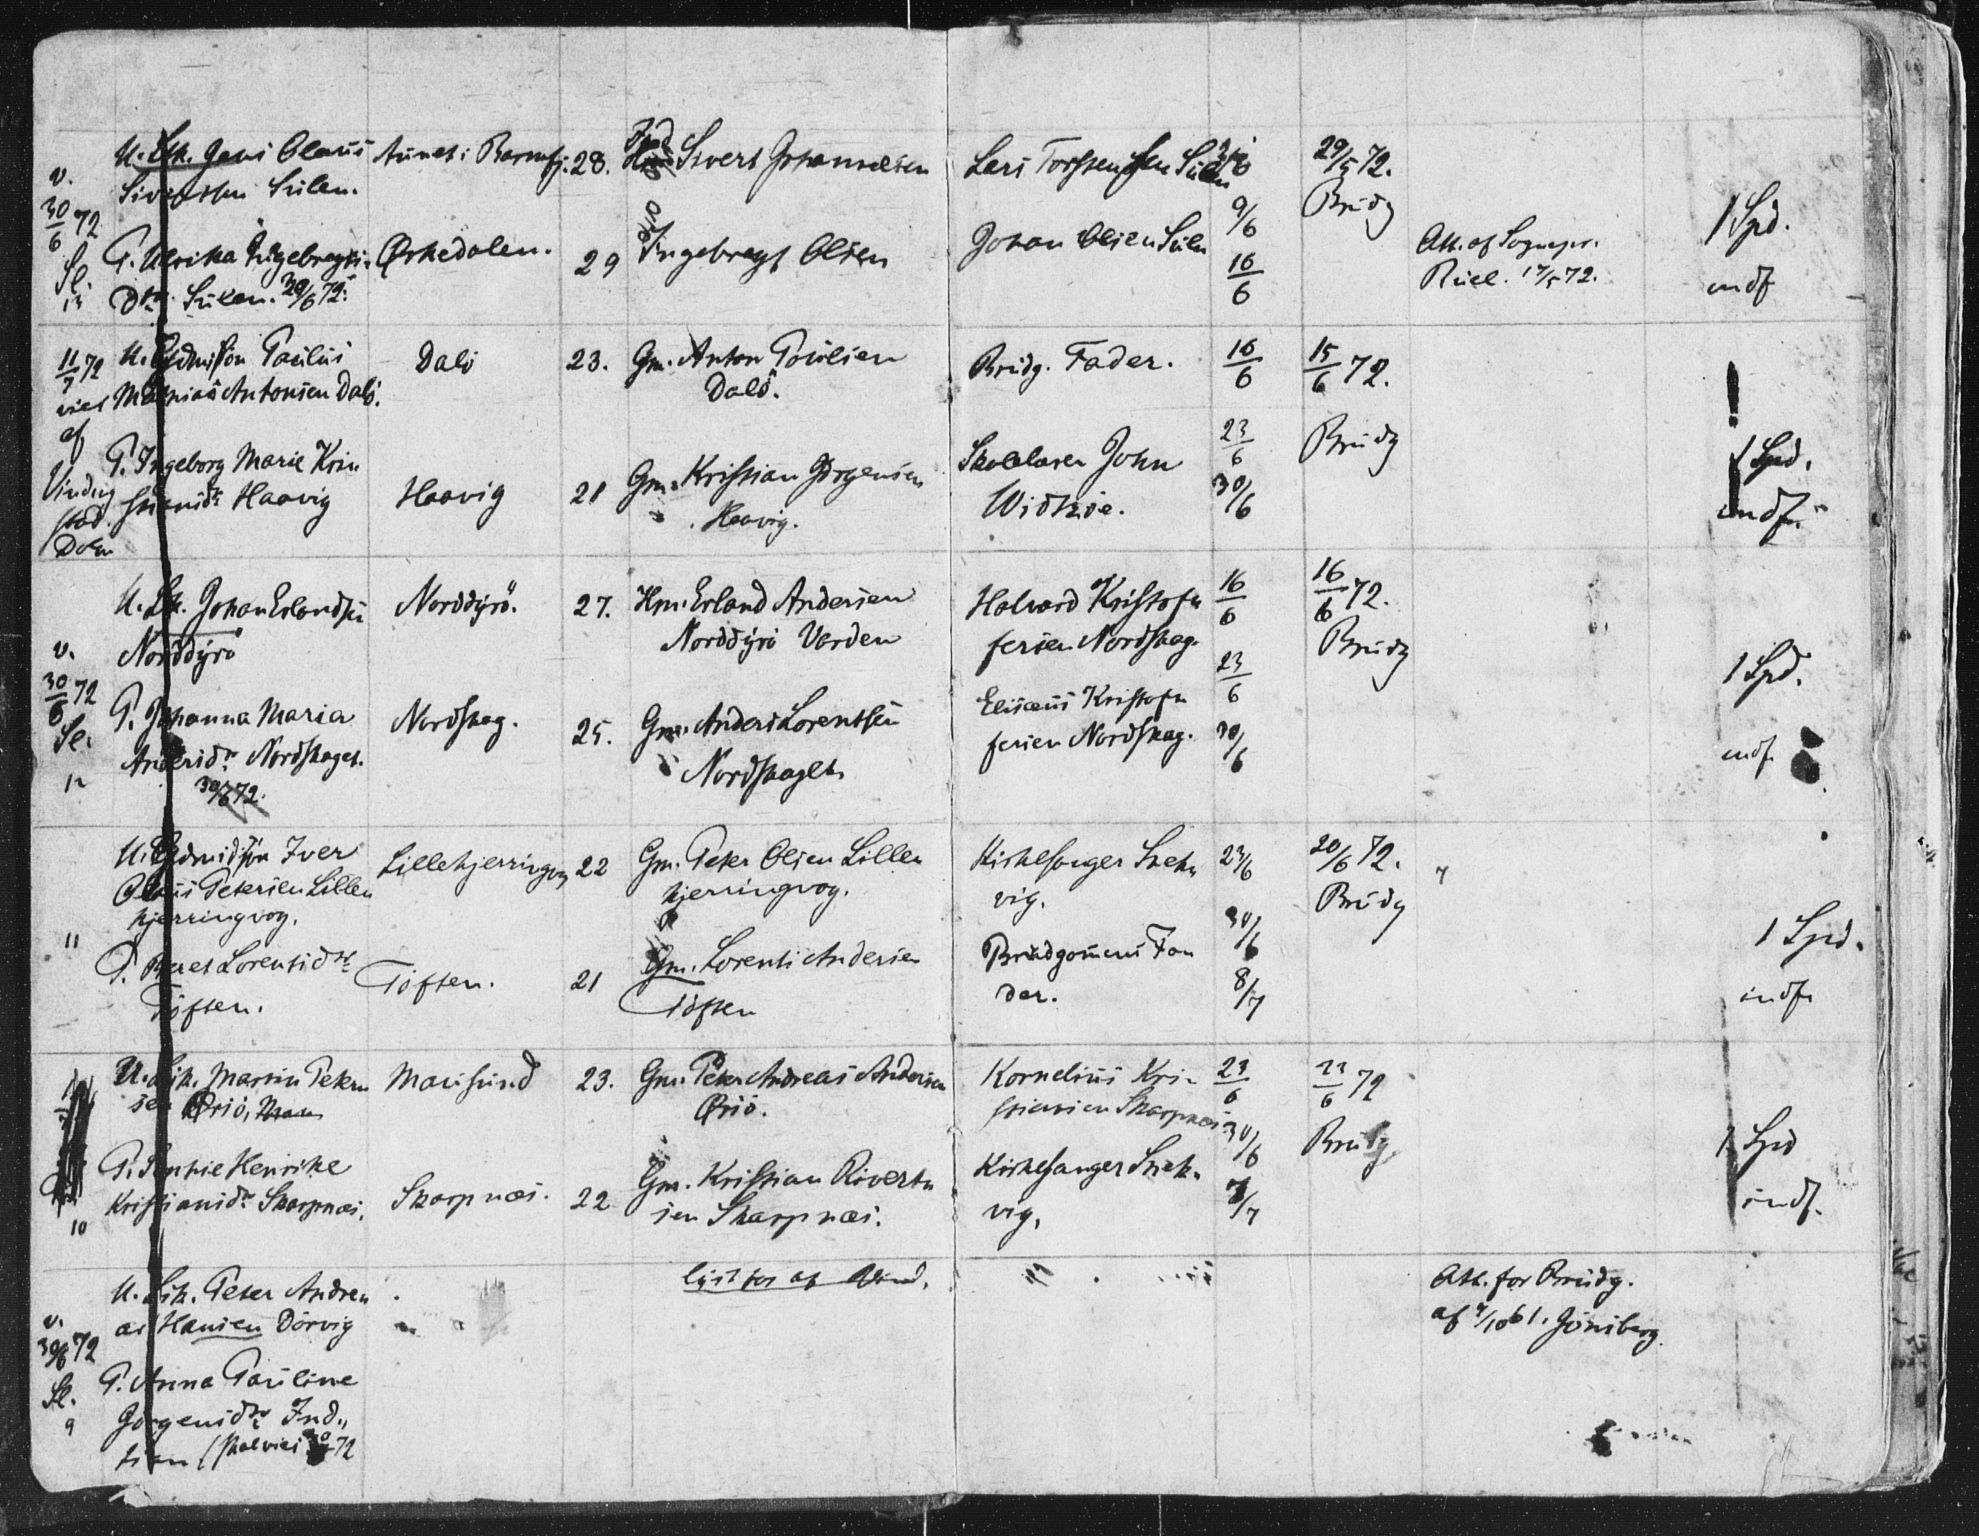 v.
30/6 72
Sl.
13
U. Ek. Jens Olaus
Sivertsen Sulen.
Aunet i Barmfj.
28.
Sivert Johannesen
Lars Torstensen Sulen
29/5 72.
Brudg
P. Ulrika Ingebregts
Dtr. Sulen. 30/6 72.
Ørkedalen.
29
Ingebregt Olsen
Johan Olsen Sulen
9/6
16/6
Att. af Sognepr.
Riiel. 17/5 72.
1 Spd.
indf
11/7 72
viet
af
Vinding
stad.
Dolm
U. Gdmssøn Paulus
Mathias Antonsen Dalø.
Dalø
23.
Gm. Anton Poulsen
Dalø.
Brudg. Fader.
16/6
15/6 72.
P. Ingeborg Marie Kri-
stiansdtr Haavig
Haavig
21
Gm. Kristian Jørgensen
Haavig.
Skolelærer John
Widsøe.
23/6
30/6
Brudg
1 Spd.
indf.
v.
30/6 72
Sl.
12
U. Ek. Johan Erlandsen
Norddyrø
Norddyrø.
27.
Hm. Erland Andersen
Norddyrø Varden
Halvard Kristof-
fersen Nordskag.
16/6
16/6 72.
Brudg
P. Johanna Maria
Andersdtr Nordskaget.
30/6 72.
Nordskag.
25.
Gm. Anders Lorentsen
Nordskaget
Elisæus Kristof-
fersen Nordskag.
23/6
30/6
1 Spd.
indf.
11
U. Gdmdsøn Iver
Olaus Petersen Lille-
kjerringvog.
Lillekjerringvog
22
Gm. Peter Olsen Lille-
kjerringvog.
Kirkesanger Snek-
vig.
23/6
20/6 72.
Brudg
P. Beret Lorentsdtr
Tøften.
Tøften.
21
Gm. Lorents Andersen
Tøften
Brudgomens Fa-
der.
30/6
8/7
1 Spd.
indf.
10
U. Ek. Martin Peter-
sen Ørsø,
Mausund
23.
Gm. Peter Andreas Andersen
Ørsø.
Kornelius Kri-
stiansen Skarpnæs
23/6
23/6 72
Brudg
P. Sophie Henrikke
Kristiansdtr Skarpnæs.
Skarpnæs.
22
Gm. Kristian Siverts-
sen Skarpnæs.
Kirkesanger Snek-
vig,
30/6
7/7
1 Spd
indf.
v.
30/6 72
Sl.
9
U. Ek. Peter Andre-
as Hansen Dørvig
lyst for af Vind.
Att. for Brudg.
af 4/10 61. Jønsberg.
P. Anna Pauline
Jørgensdtr Ind-
tian (skal vies 30/6 72